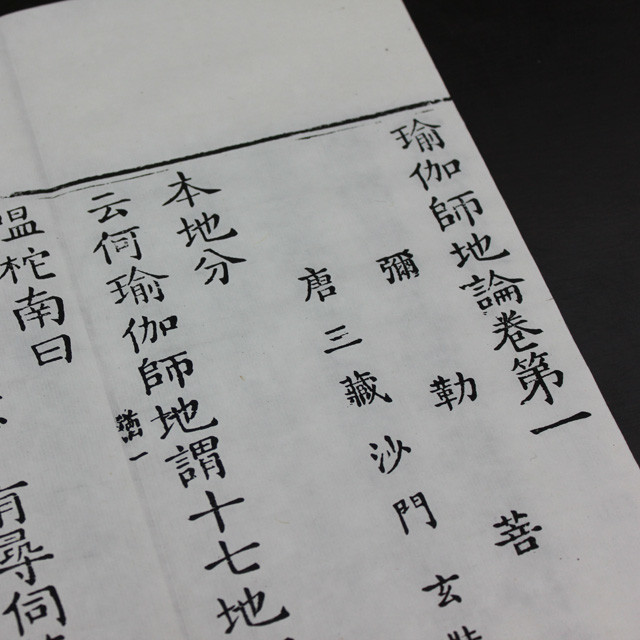 瑜伽師地論卷第一
彌勒菩
唐三藏沙門玄奘
本地分
云何瑜伽師地謂十七地
嗢柁南曰
有尋伺